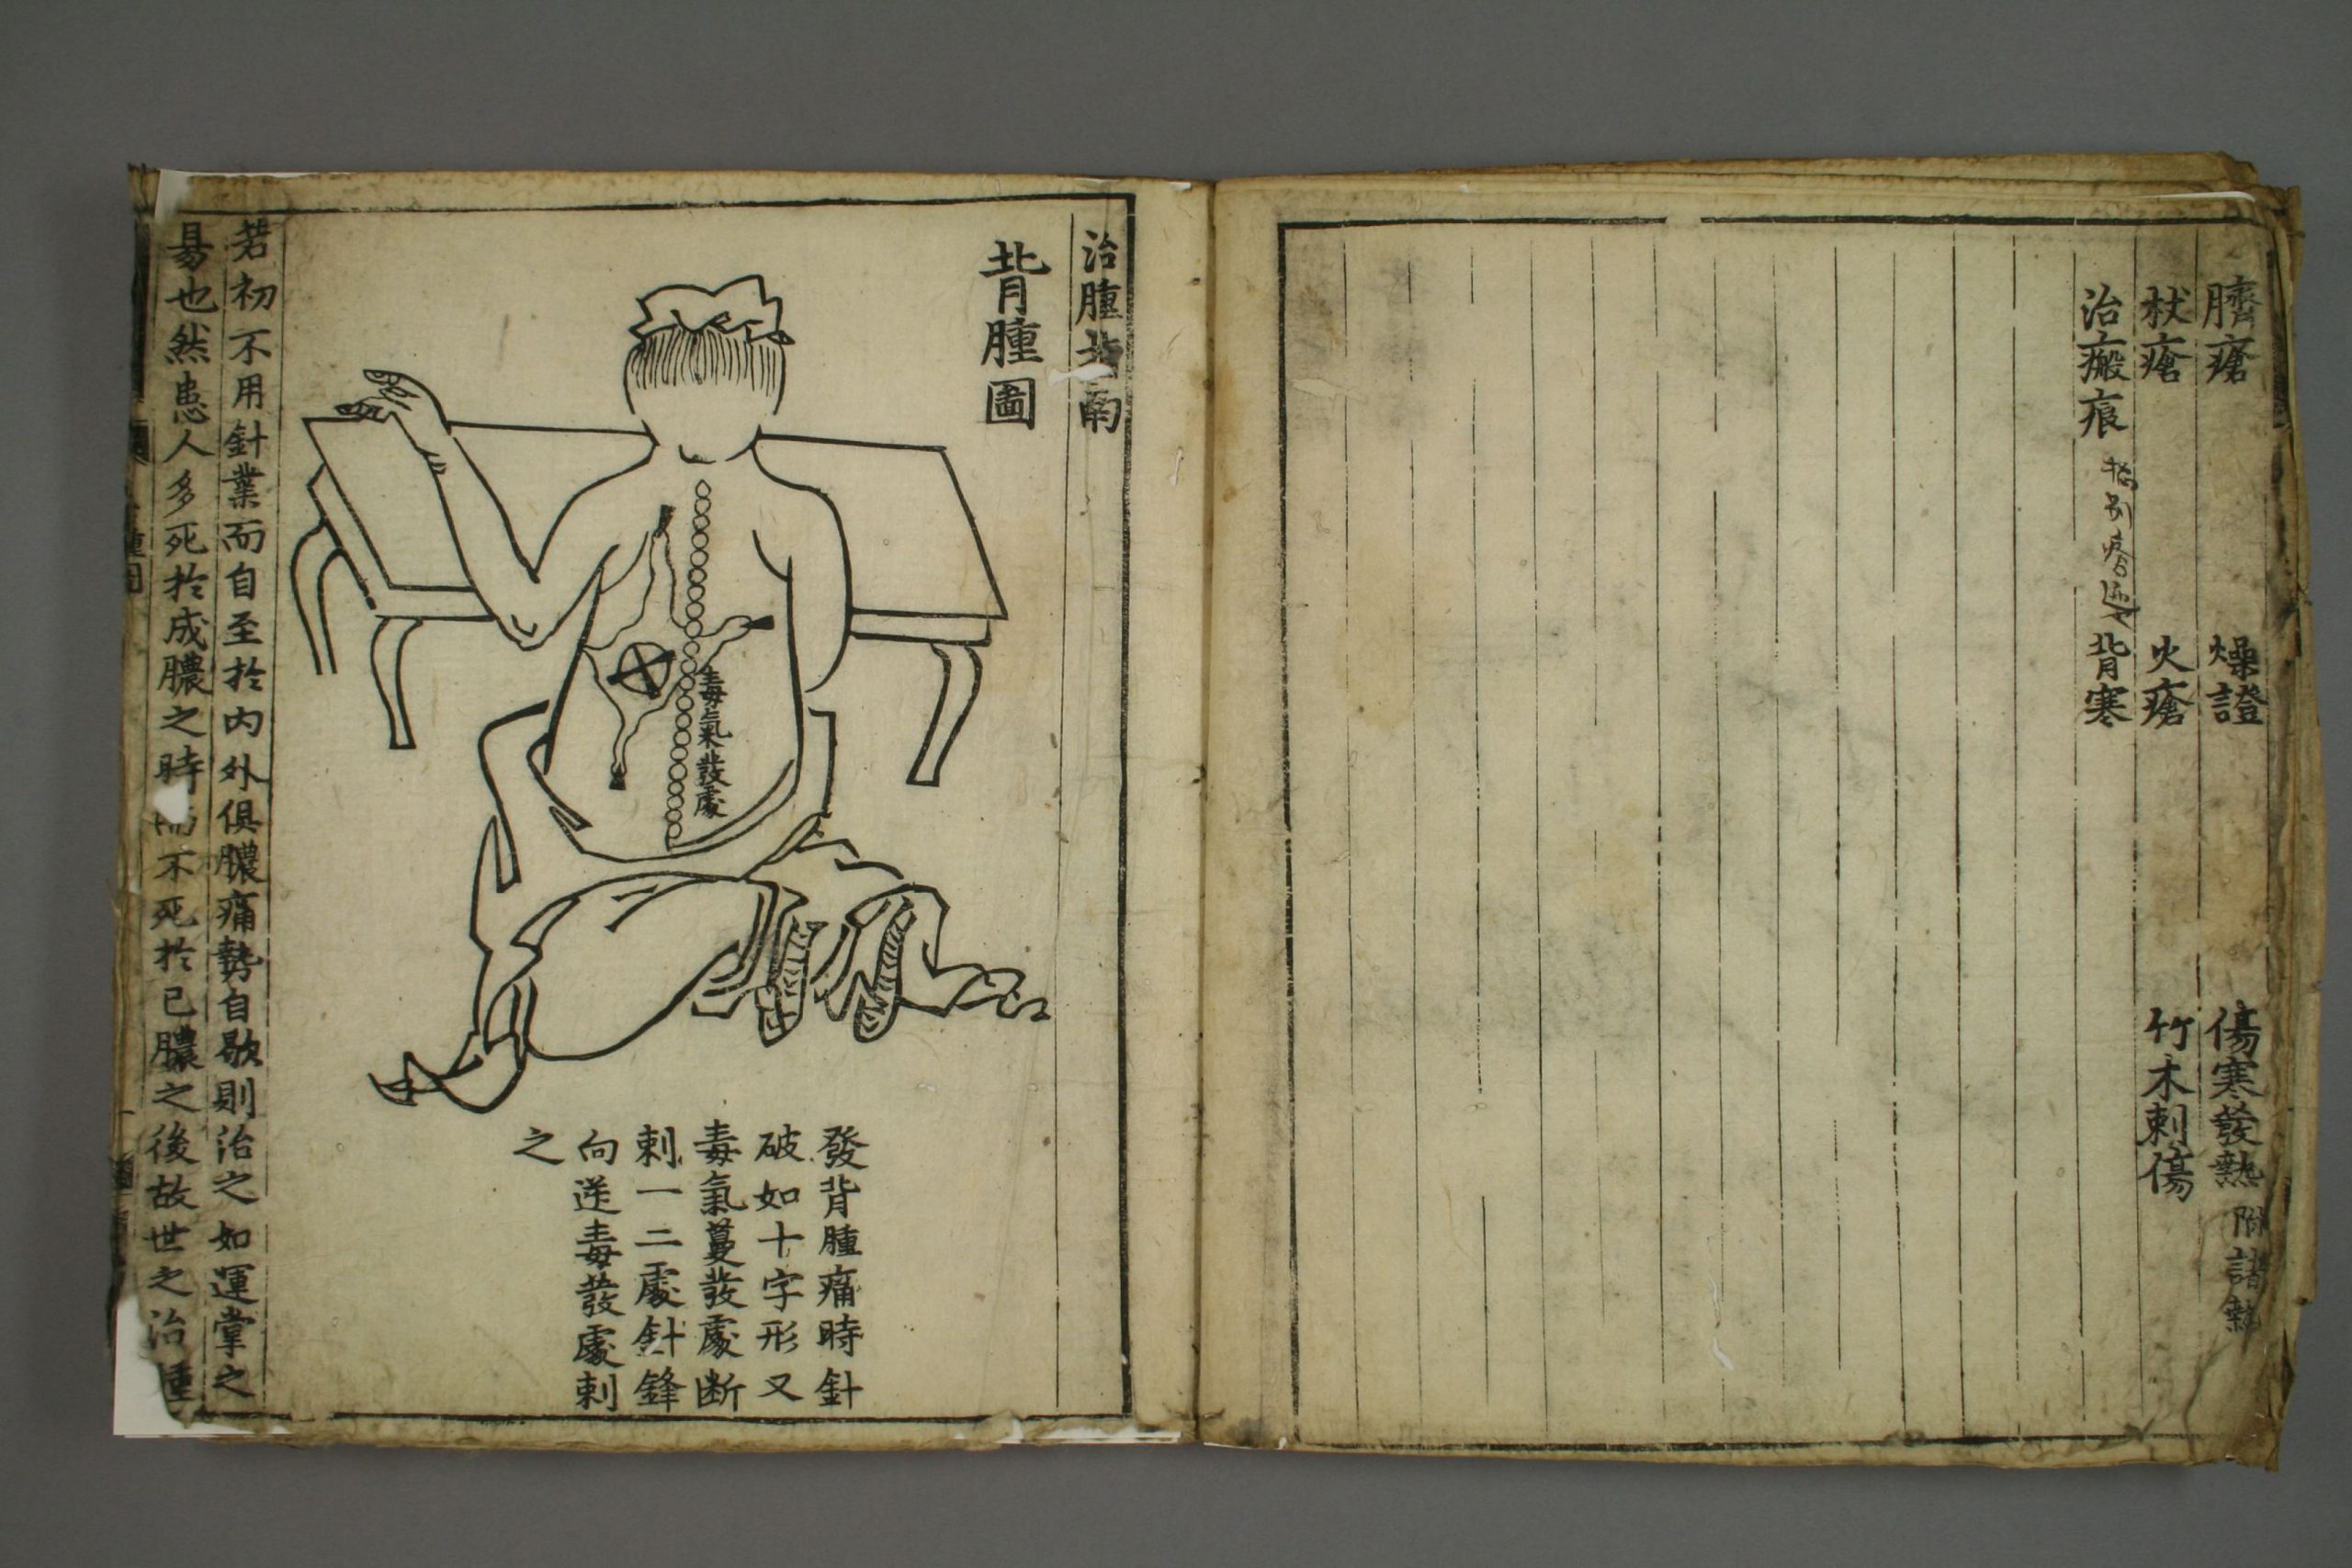 臍瘡 燥證 傷寒發熱 附諸熱
杖瘡 火瘡 竹木刺傷
治瘢痕 背寒
治腫指南
背腫圖
毒氣發處
發背腫痛時針
破如十字形又
毒氣蔓發處断
刺一二處針鋒
向逆毒發處刺
之
若初不用針業而自至於内外俱膿痛勢自歇則治之如運掌之
易也然患人多死於成膿之時而不死於已膿之後故世之治腫